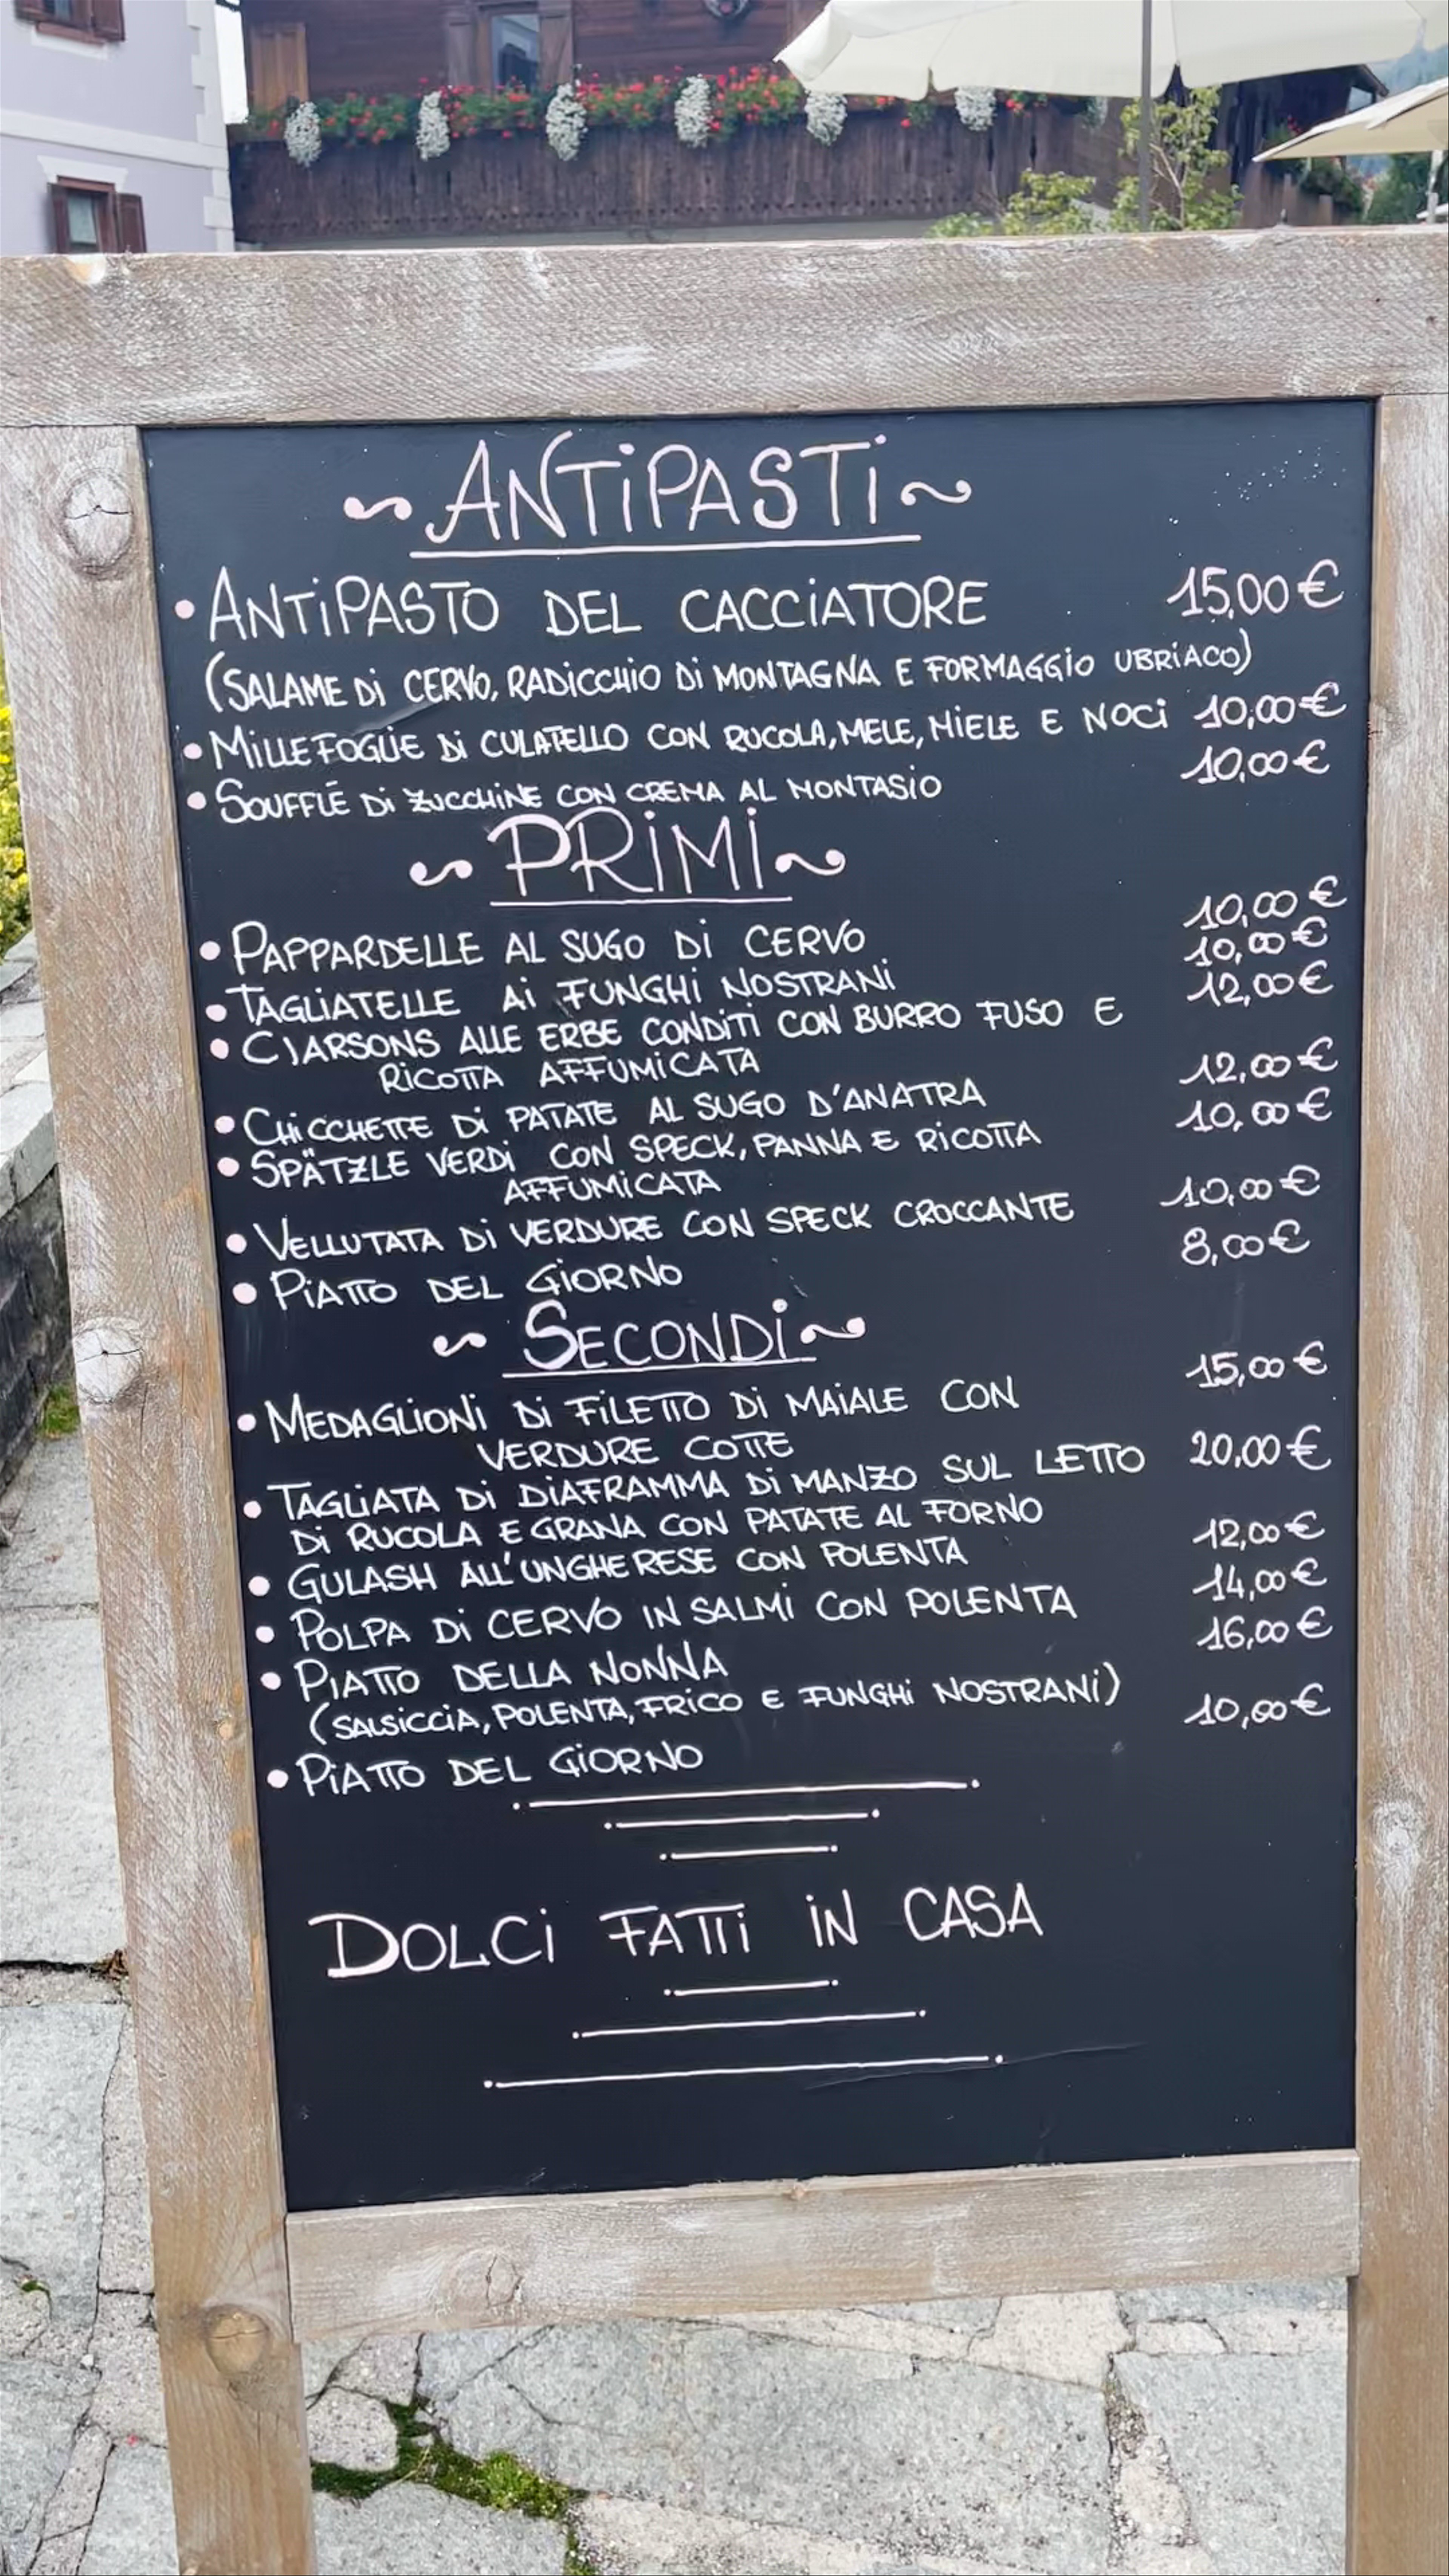 ANTIPASTI
• ANTIPASTO DEL CACCIATORE 15,00€
(SALAME DI CERVO, RADICCHIO DI MONTAGNA E FORMAGGIO UBRIACO)
• MILLEFOGLIE DI CULATELLO CON RUCOLA, MELE, MIELE E NOCI 10,00€
• SOUFFLÉ DI ZUCCHINE CON CREMA AL MONTASIO 10,00€
PRIMI
• PAPPARDELLE AL SUGO DI CERVO 10,00€
• TAGLIATELLE AI FUNGHI NOSTRANI 10,00€
• CJARSONS ALLE ERBE CONDITI CON BURRO FUSO E 12,00€
RICOTTA AFFUMICATA
• CHICCHETTE DI PATATE AL SUGO D'ANATRA 12,00€
• SPÄTZLE VERDI CON SPECK, PANNA E RICOTTA 10,00€
AFFUMICATA
• VELLUTATA DI VERDURE CON SPECK CROCCANTE 10,00€
• PIATTO DEL GIORNO 8,00€
SECONDI
• MEDAGLIONI DI FILETTO DI MAIALE CON 15,00€
VERDURE COTTE
• TAGLIATA DI DIAFRAMMA DI MANZO SUL LETTO 20,00€
DI RUCOLA E GRANA CON PATATE AL FORNO
• GULASH ALL'UNGHERESE CON POLENTA 12,00€
• POLPA DI CERVO IN SALMI CON POLENTA 14,00€
• PIATTO DELLA NONNA 16,00€
(SALSICCIA, POLENTA, FRICO E FUNGHI NOSTRANI)
• PIATTO DEL GIORNO 10,00€
DOLCI FATTI IN CASA